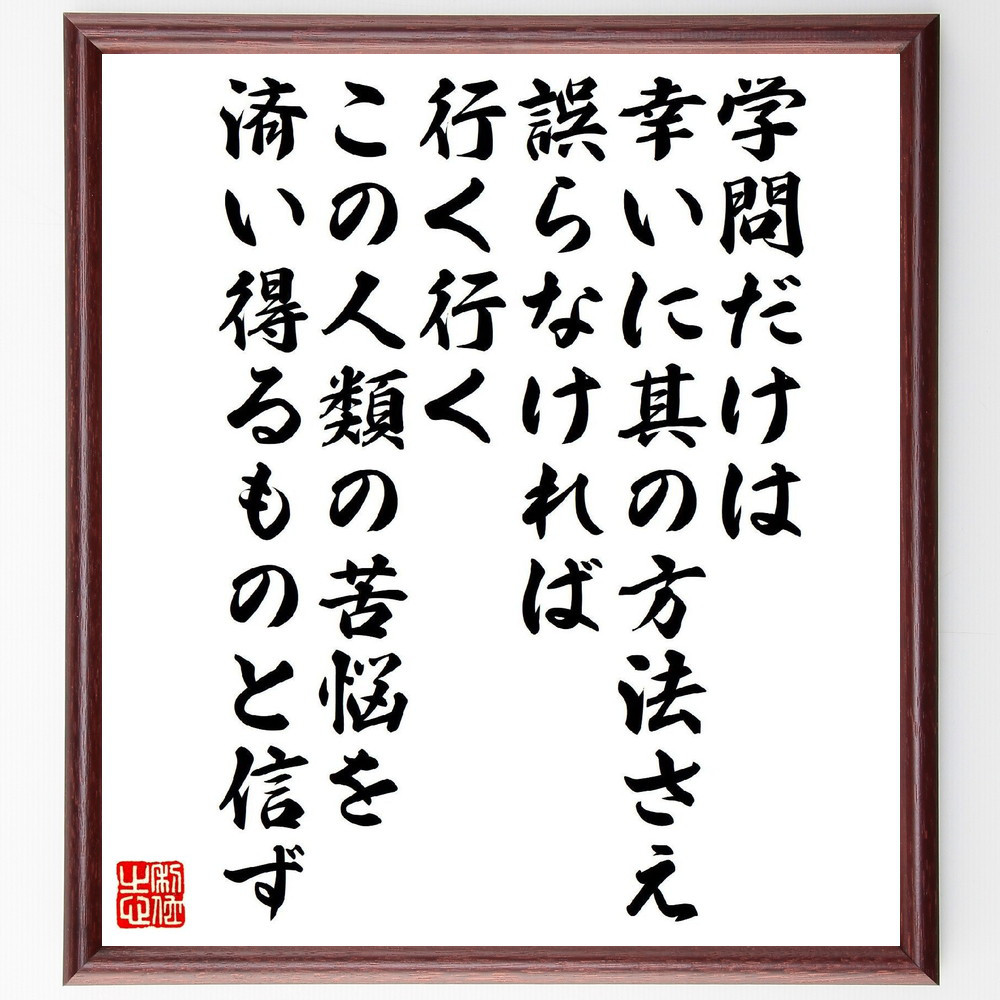 学問だけは
幸いに其の方法さえ
誤らなければ
行く行く
この人類の苦悩を
済い得るものと信ず